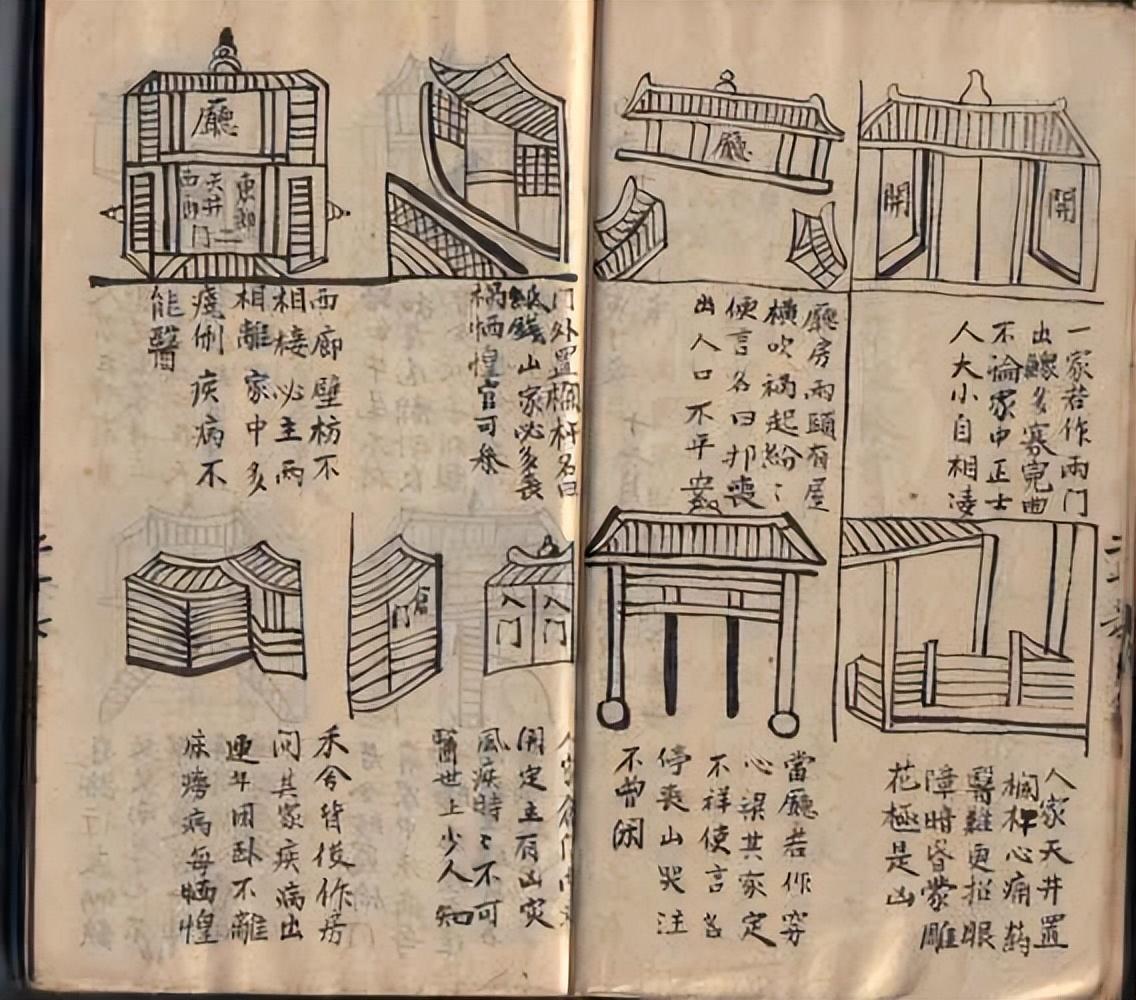 開
開
一家若作兩門
出鰥多寡冤曲
不論家中正士
人大小自相凌
廳
廳房兩頭有屋
橫吹禍起紛〻
便言名曰喪
出人口不平安
人家天井置
欄杆心痛药
醫難更招眼
障暗昏蒙雕
花極是凶
當廳若作穷
心梁其家定
不祥使言名
停喪凶哭注
不曾閑
門外置欄杆名曰
紙錢山家必多喪
禍恓惶官可叅
廳
天井
門
西廊壁枋不
相接必主兩
相離家中多
疾病不
能醫
入門
入門
倉門
開定主有凶灾
風疾時〻不可
醫世上少人知
禾舍皆後作房
问其家疾病出
連年困卧不離
床癆病每恓惶